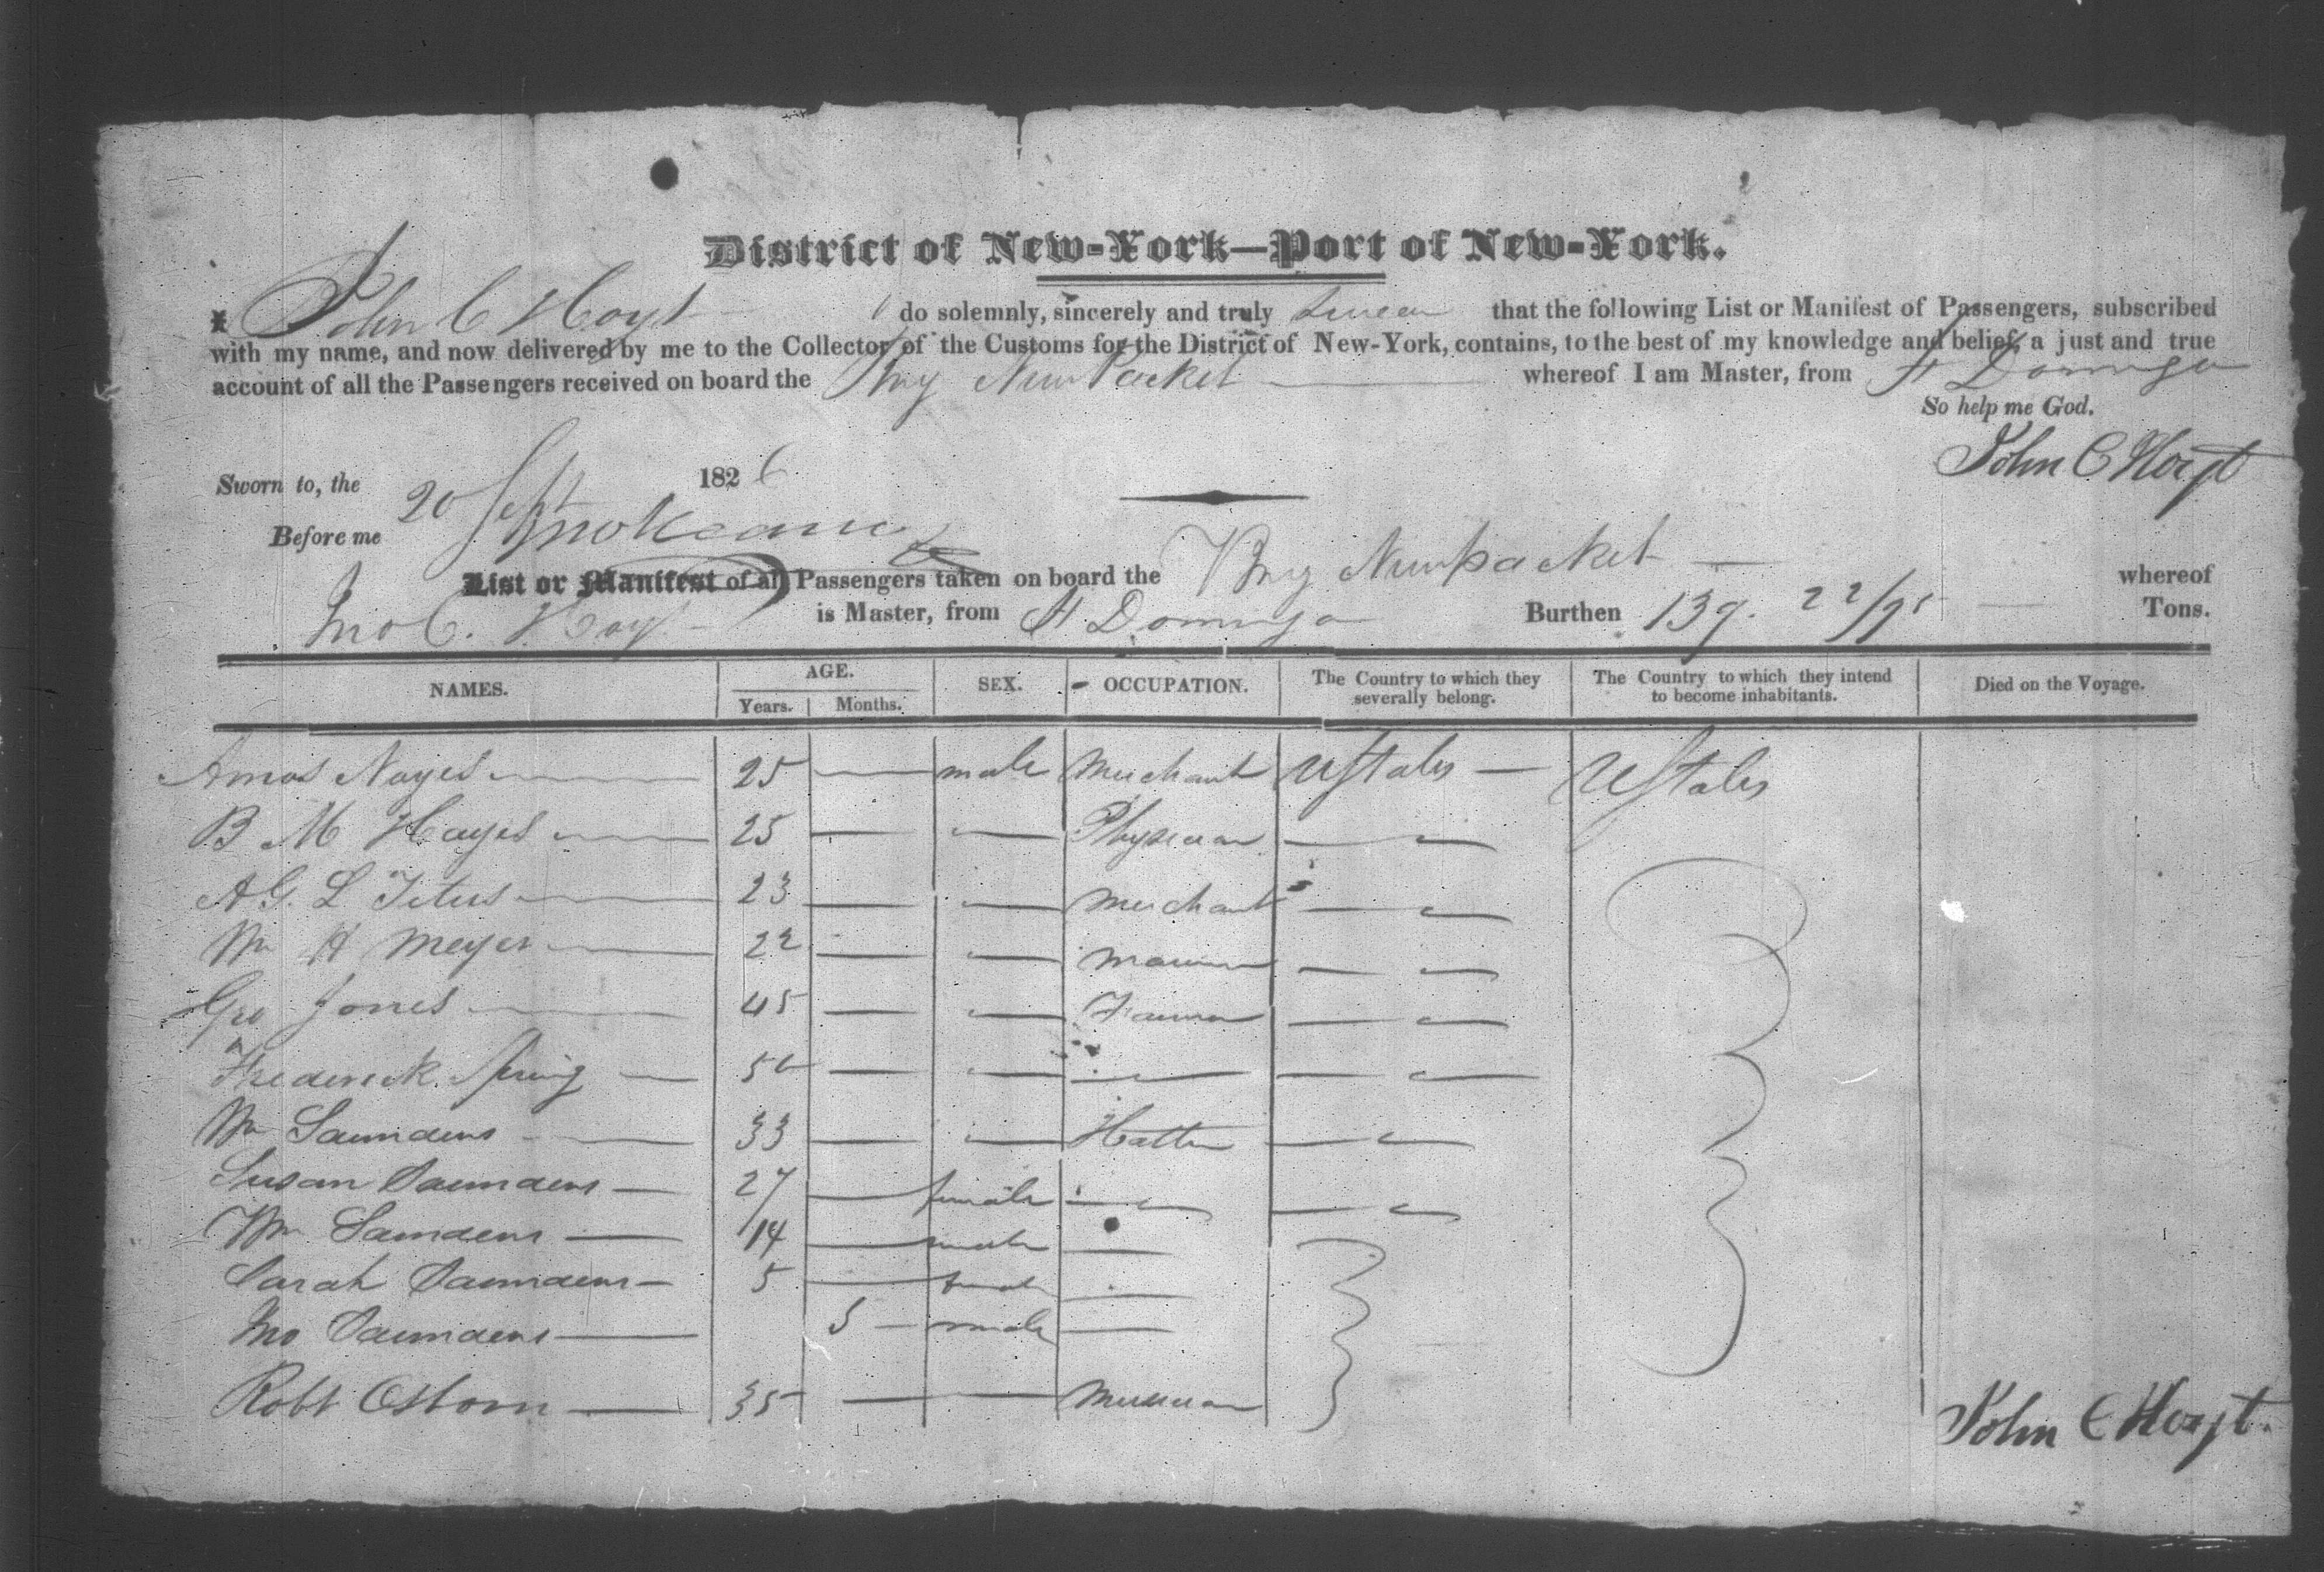 District of New-York—Port of New-York.
I John C Hoyt do solemnly, sincerely and truly swear that the following List or Manifest of Passengers, subscribed
with my name, and now delivered by me to the Collector of the Customs for the District of New-York, contains, to the best of my knowledge and belief, a just and true
account of all the Passengers received on board the Brig New Packet whereof I am Master, from St Domingo
So help me God.
John C Hoyt
Sworn to, the 20 Sept 1826
Before me
List or Manifest of all Passengers taken on board the Brig New packet whereof
Jno C. Hoyt is Master, from St Domingo Burthen 139. 22/95 Tons.
NAMES. AGE. Years. Months. SEX. OCCUPATION. The Country to which they severally belong. The Country to which they intend to become inhabitants. Died on the Voyage.
Amos Noyes 25 — male Merchant UStates — UStates
B M Hayes 25 — — Physician — —
A G. L Titus 23 — — Merchant — —
Wm H Meyer 22 — — Mariner — —
Geo Jones 45 — — Farmer — —
Frederick Spring — 50 — — — — —
Wm Saunders 33 — — Hatter — —
Susan Saunders — 27 — female — — —
Wm Saunders — 14 — male —
Sarah Saunders — 5 — female —
Jno Saunders — 5 — male —
Robt Osborn — 35 — — Musician
John C Hoyt.